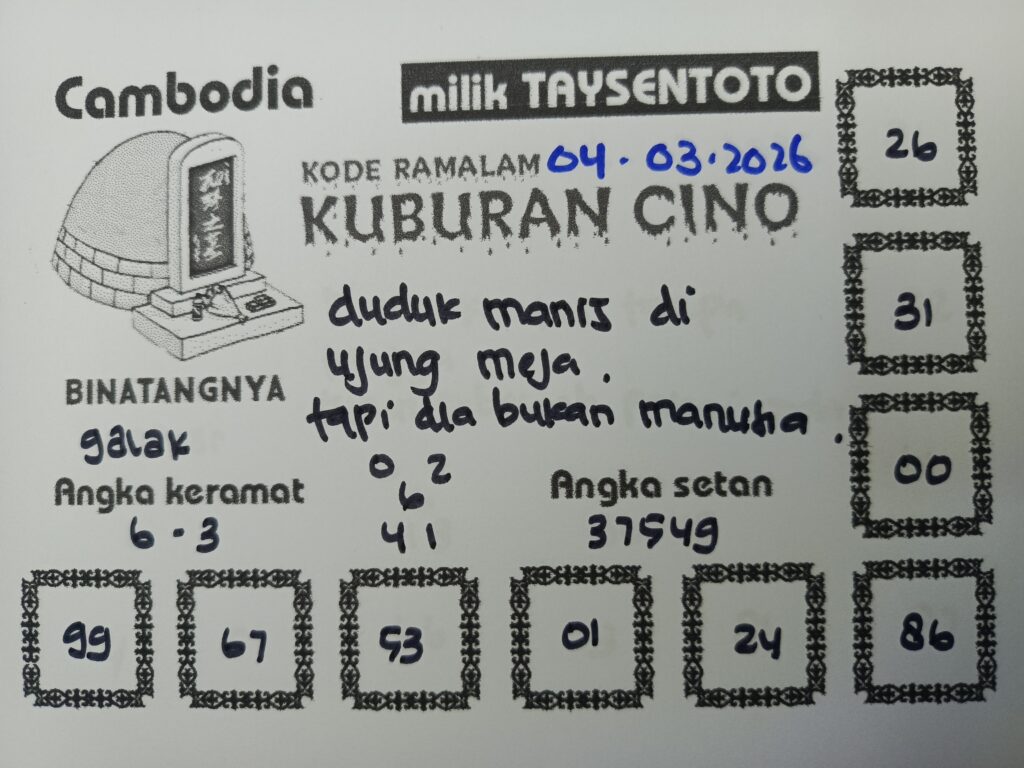 Cambodia
milik TAYSENTOTO
KODE RAMALAM 04.03.2026
KUBURAN CINO
duduk manis di
ujung meja.
tapi dia bukan manusia.
BINATANGNYA
galak
Angka keramat
6 - 3
0 2
6
4 1
Angka setan
37549
26
31
00
99
67
53
01
24
86